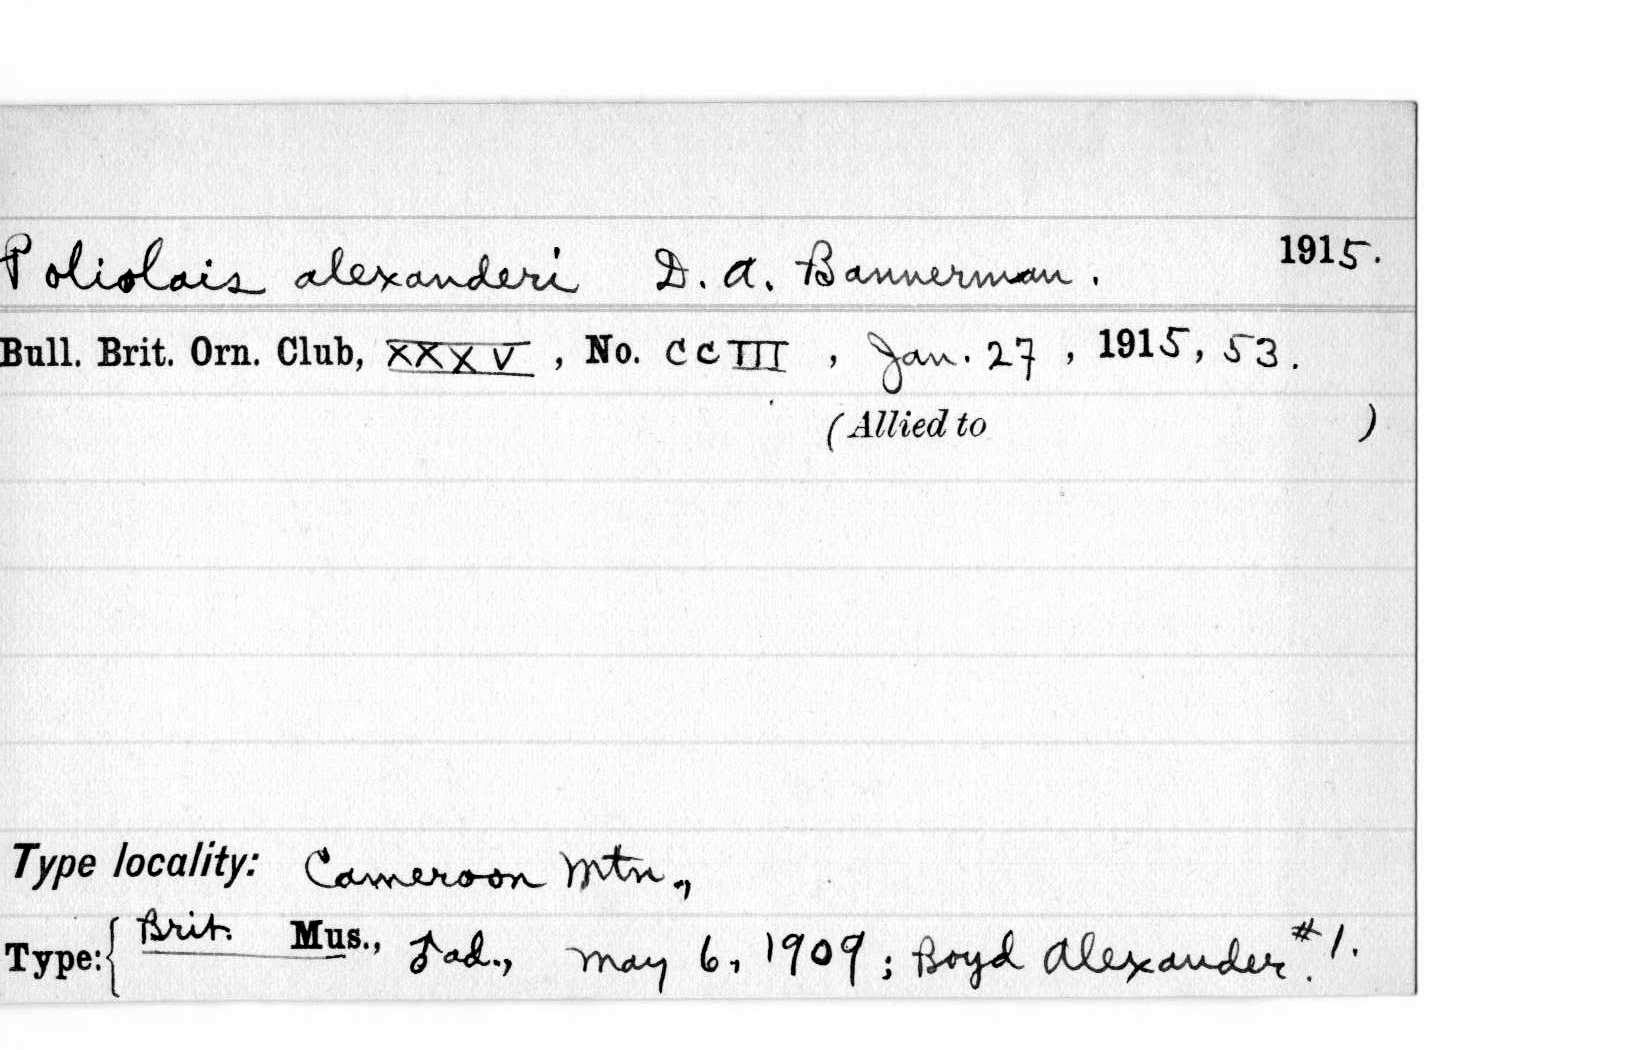 Poliolais alexanderi D. A. Bannerman. 1915.
Bull. Brit. Orn. Club, XXXV, No. CCIII, Jan. 27, 1915, 53.
(Allied to )
Type locality: Cameroon Mtn.,
Type: { Brit. Mus., ♂ ad., May 6, 1909; Boyd Alexander. #1.